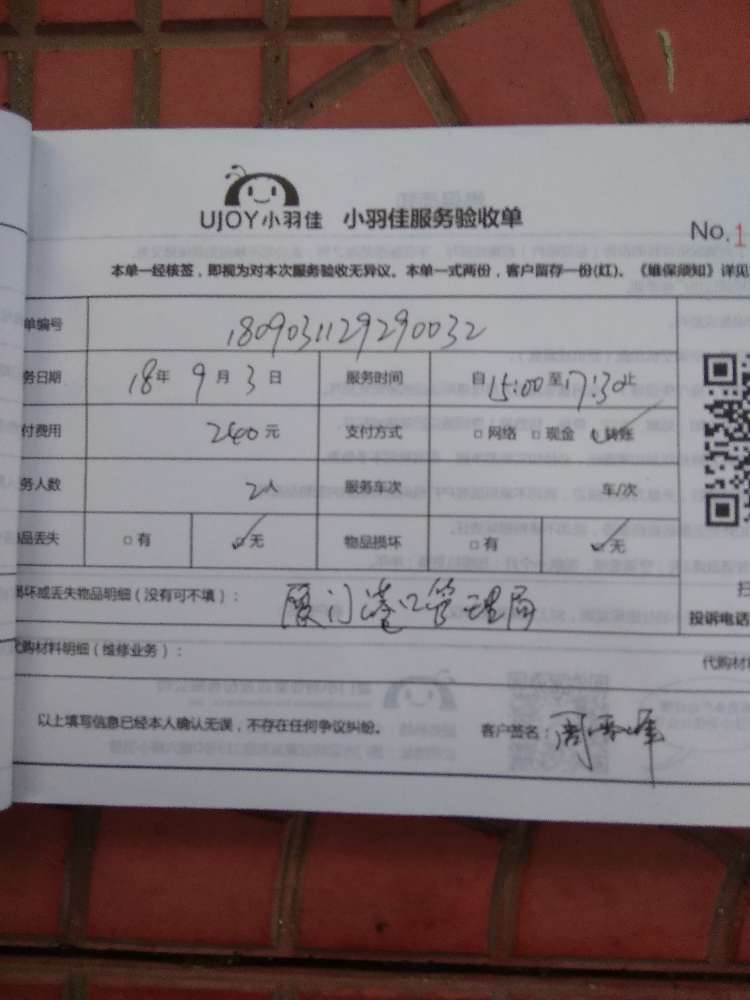 UJOY小羽佳 小羽佳服务验收单
No.1
本单一经核签，即视为对本次服务验收无异议。本单一式两份，客户留存一份(红)。《维保须知》详见
单编号 1809031129290032
务日期 18年 9月 3日 服务时间 自15:00至17:30止
付费用 240元 支付方式 □网络 □现金 转账
务人数 2人 服务车次 车/次
品丢失 □有 无 物品损坏 □有 无
损坏或丢失物品明细（没有可不填）： 厦门港口管理局
投诉电话
代购材料明细（维修业务）： 代购材
以上填写信息已经本人确认无误，不存在任何争议纠纷。 客户签名：周